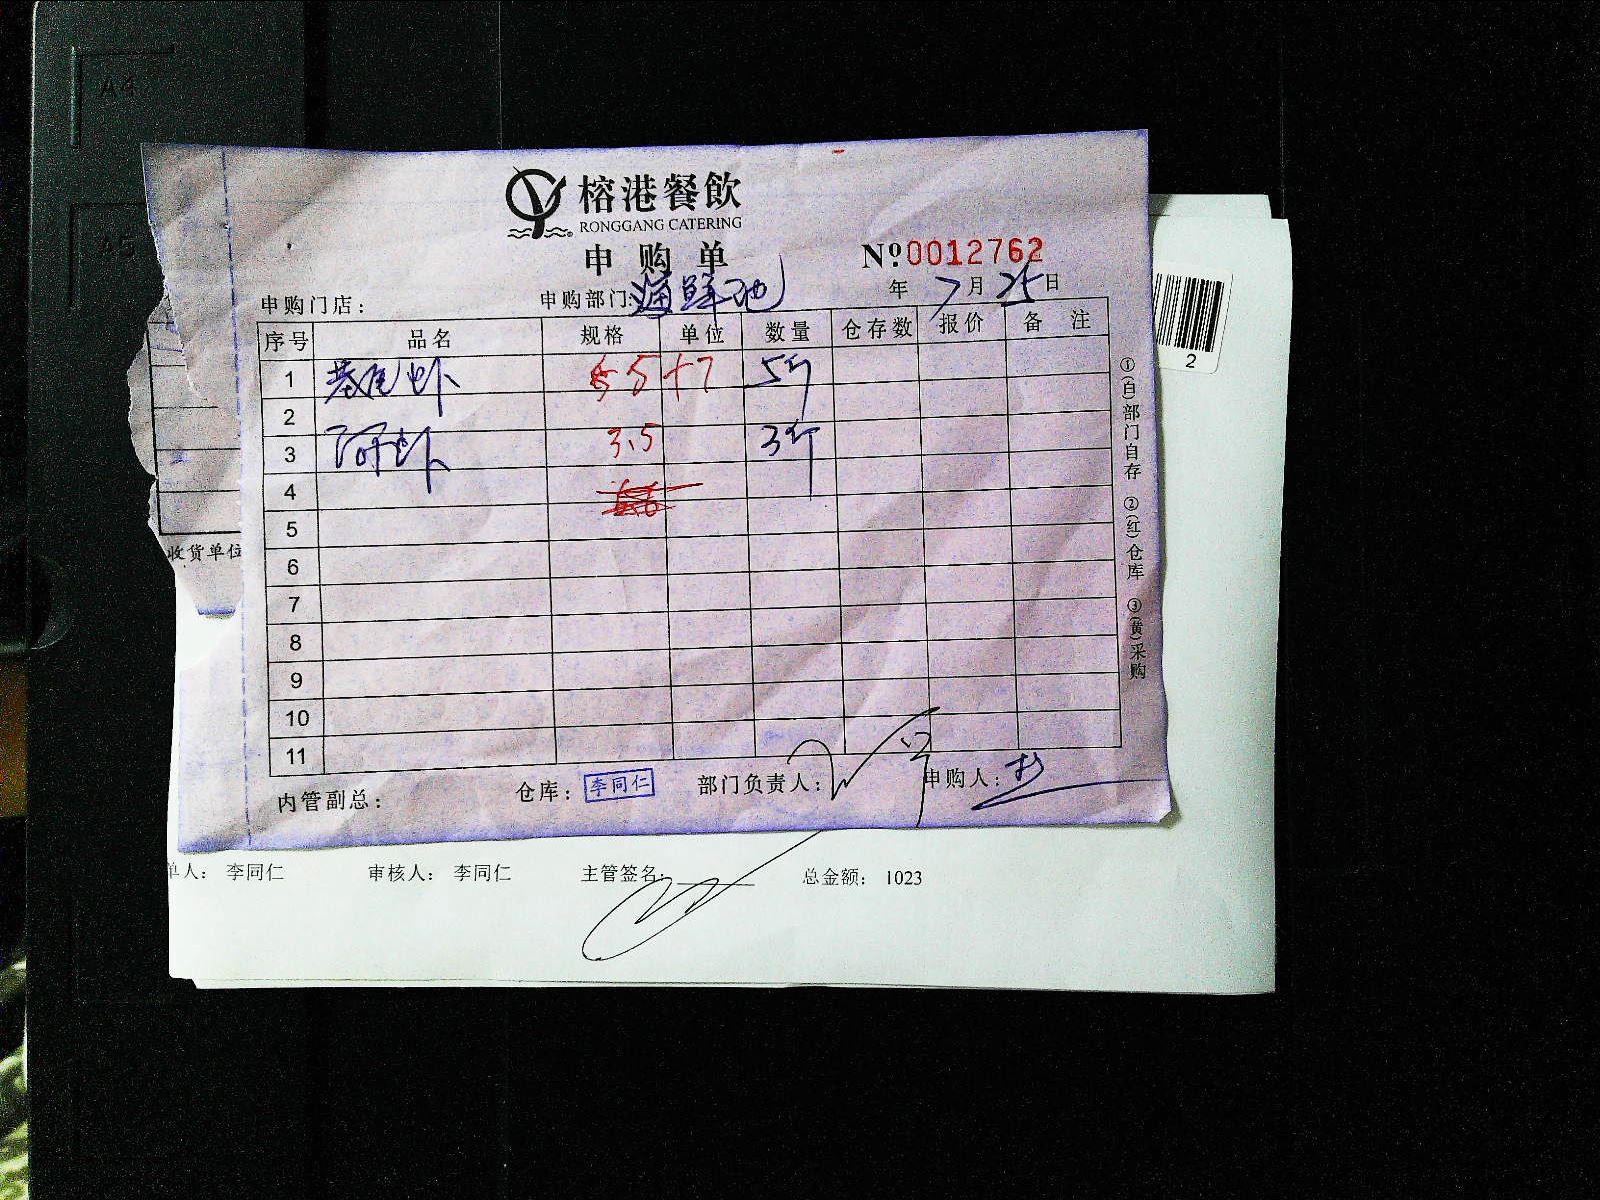 A4
A5
榕港餐飲
RONGGANG CATERING
申购单
№0012762
申购门店：
申购部门：海鲜池
年 7月25日
序号 品名 规格 单位 数量 仓存数 报价 备注
1 基尾虾 5+7 5斤
2
3 阿虾 3.5 3斤
4
5
6
7
8
9
10
11
内管副总：
仓库：李同仁
部门负责人：
申购人：
①(白)部门自存 ②(红)仓库 ③(黄)采购
收货单位
2
单人：李同仁 审核人：李同仁 主管签名： 总金额：1023